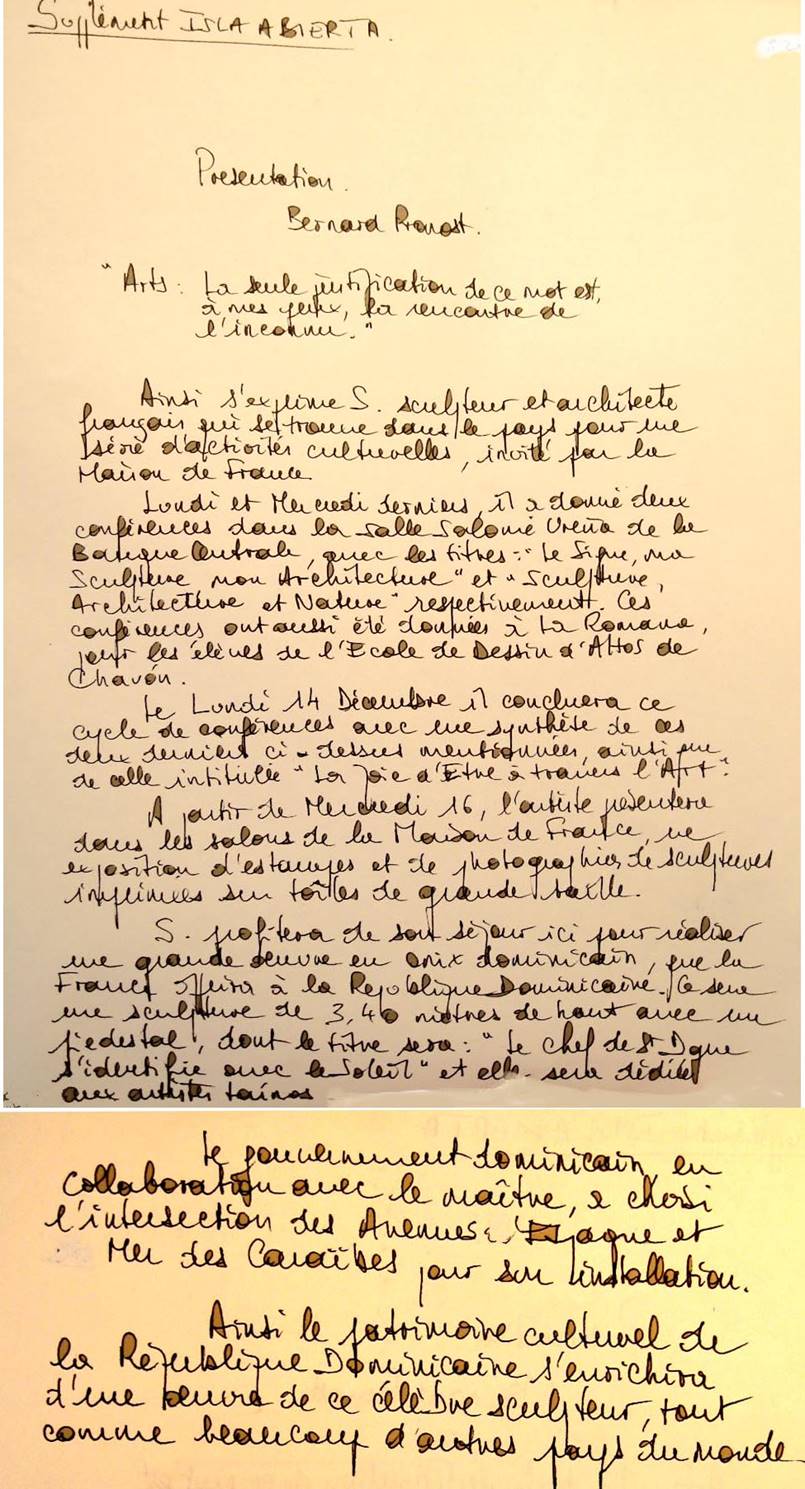 Supplément ISLA ABIERTA.
Presentation.
Bernard Pronost.
"Arts : La seule justification de ce mot est,
à mes yeux, la rencontre de
l'inconnu."
Ainsi s'exprime S. sculpteur et architecte
français qui se trouve dans le pays pour une
série d'activités culturelles, invité par la
Maison de France.
Lundi et Mercredi derniers, il a donné deux
conférences dans la salle Salomé Ureña de la
Banque Centrale, avec les titres : "Le Signe, ma
Sculpture mon Architecture" et "Sculpture,
Architecture et Nature" respectivement. Ces
conférences ont aussi été données à La Romana,
pour les élèves de l'Ecole de Dessin d'Altos de
Chavón.
Le Lundi 14 Décembre il concluera ce
cycle de conférences avec une synthèse de ces
deux derniers ci-dessus mentionnées, ainsi que
de celle intitulée "La Joie d'Etre à travers l'Art".
A partir de Mercredi 16, l'artiste présentera
dans les salons de la Maison de France, une
exposition d'estampes et de photographies de sculptures
imprimées sur toîles de grande taille.
S. profitera de son séjour ici pour réaliser
une grande oeuvre en onix dominicain, que la
France offrira à la République Dominicaine. Ce sera
une sculpture de 3,40 mètres de haut avec un
piedestal, dont le titre sera : "Le Chef de St Dgue
s'identifie avec le Soleil" et elle sera dédiée
aux artistes taïnos
Le gouvernement dominicain, en
collaboration avec le maître, a choisi
l'intersection des Avenues : Espagne et
Mer des Caraïbes pour son installation.
Ainsi le patrimoine culturel de
la République Dominicaine s'enrichira
d'une oeuvre de ce célèbre sculpteur, tout
comme beaucoup d'autres pays du monde